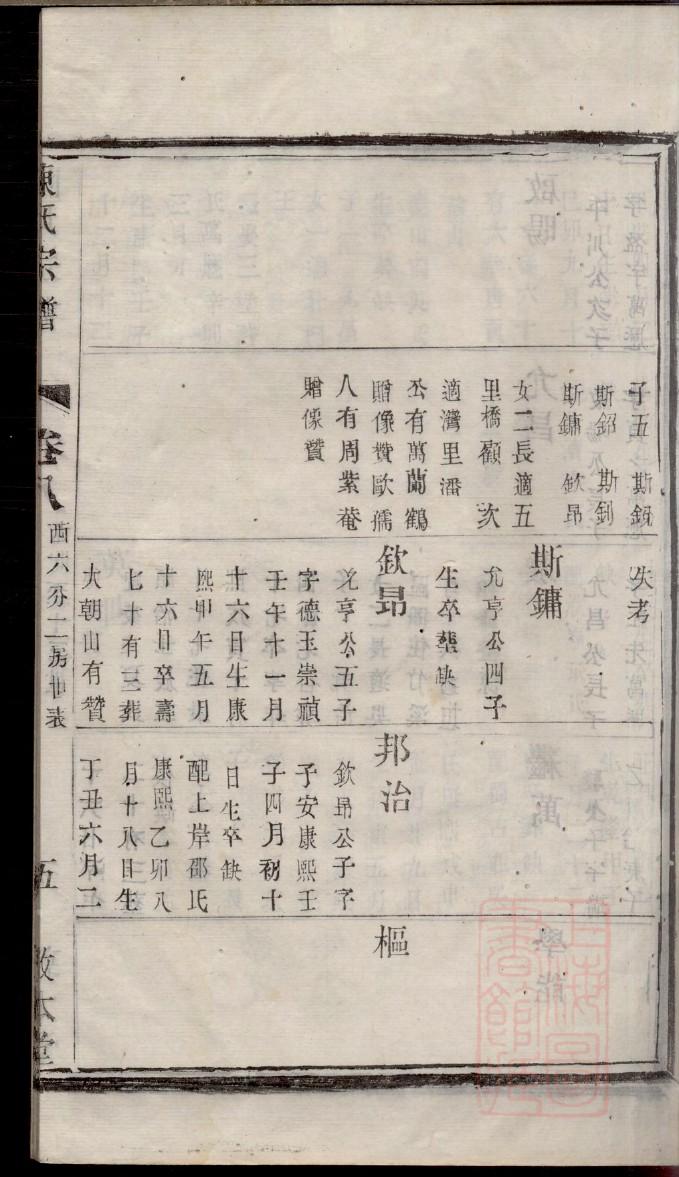 子五 斯鋇
斯鉊 斯釗
斯鏞 欽昂
女二長適五
里橋顧 次
適灣里潘
公有萬蘭鶴
贈像贊歐孺
人有周紫菴
贈像贊
失考
斯鏞
允亨公四子
生卒塟缺
欽昂
允亨公五子
字德玉崇禎
壬午十一月
十六日生康
熙甲午五月
十六日卒壽
七十有三葬
大朝山有贊
邦治
欽昂公子字
予安康熙壬
子四月初十
日生卒缺
配上岸邵氏
康熙乙卯八
月十八日生
丁丑六月二
樞
陳氏宗譜
卷八
西六分二房世表
五
敦本堂